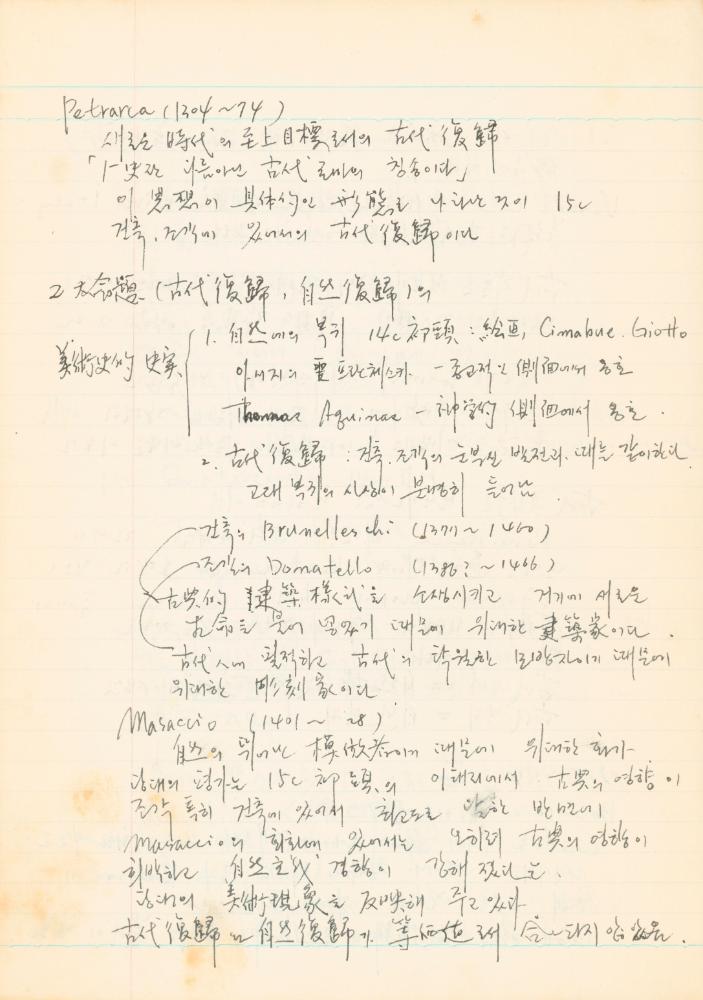 Petrarca (1304~74)
새로운 時代의 至上目標로서의 古代復歸
「歷史란 다름아닌 古代로마의 칭송이다」
이 思想이 具体的인 形態로 나타난 것이 15c
건축, 조각에 있어서의 古代復歸이다
2 大命題 (古代復歸, 自然復歸)의
美術史的 史実
1. 自然에의 복귀 14c 初頭 : 絵画, Cimabue. Giotto
아시지의 聖 프란체스카 - 종교적인 側面에서 옹호
Thomas Aquinas - 神学的 側面에서 옹호.
2. 古代復歸 : 건축, 조각의 눈부신 발전과 때를 같이한다
고대 복귀의 사상이 분명히 들어남.
건축의 Brunelleschi (1377~1460)
조각의 Donatello (1386? ~1466)
古典的 建築様式을 소생시키고 거기에 새로운
古命을 불어 넣었기 때문에 위대한 建築家이다.
古代人에 필적하고 古代의 탁월한 모방자이기 때문에
위대한 彫刻家이다
Masaccio (1401~28)
自然의 뛰어난 模倣者이기 때문에 위대한 화가
당대의 평가는 15c 初頭의 이태리에서 古典의 영향이
조각 특히 건축에 있어서 최고도로 달한 반면에
Masaccio의 회화에 있어서는 오히려 古典의 영향이
희박하고 自然主義 경향이 강해 졌다는.
당대의 美術現象을 反映해 주고 있다
古代復歸와 自然復歸가 等価値로서 合 되지 않았음.